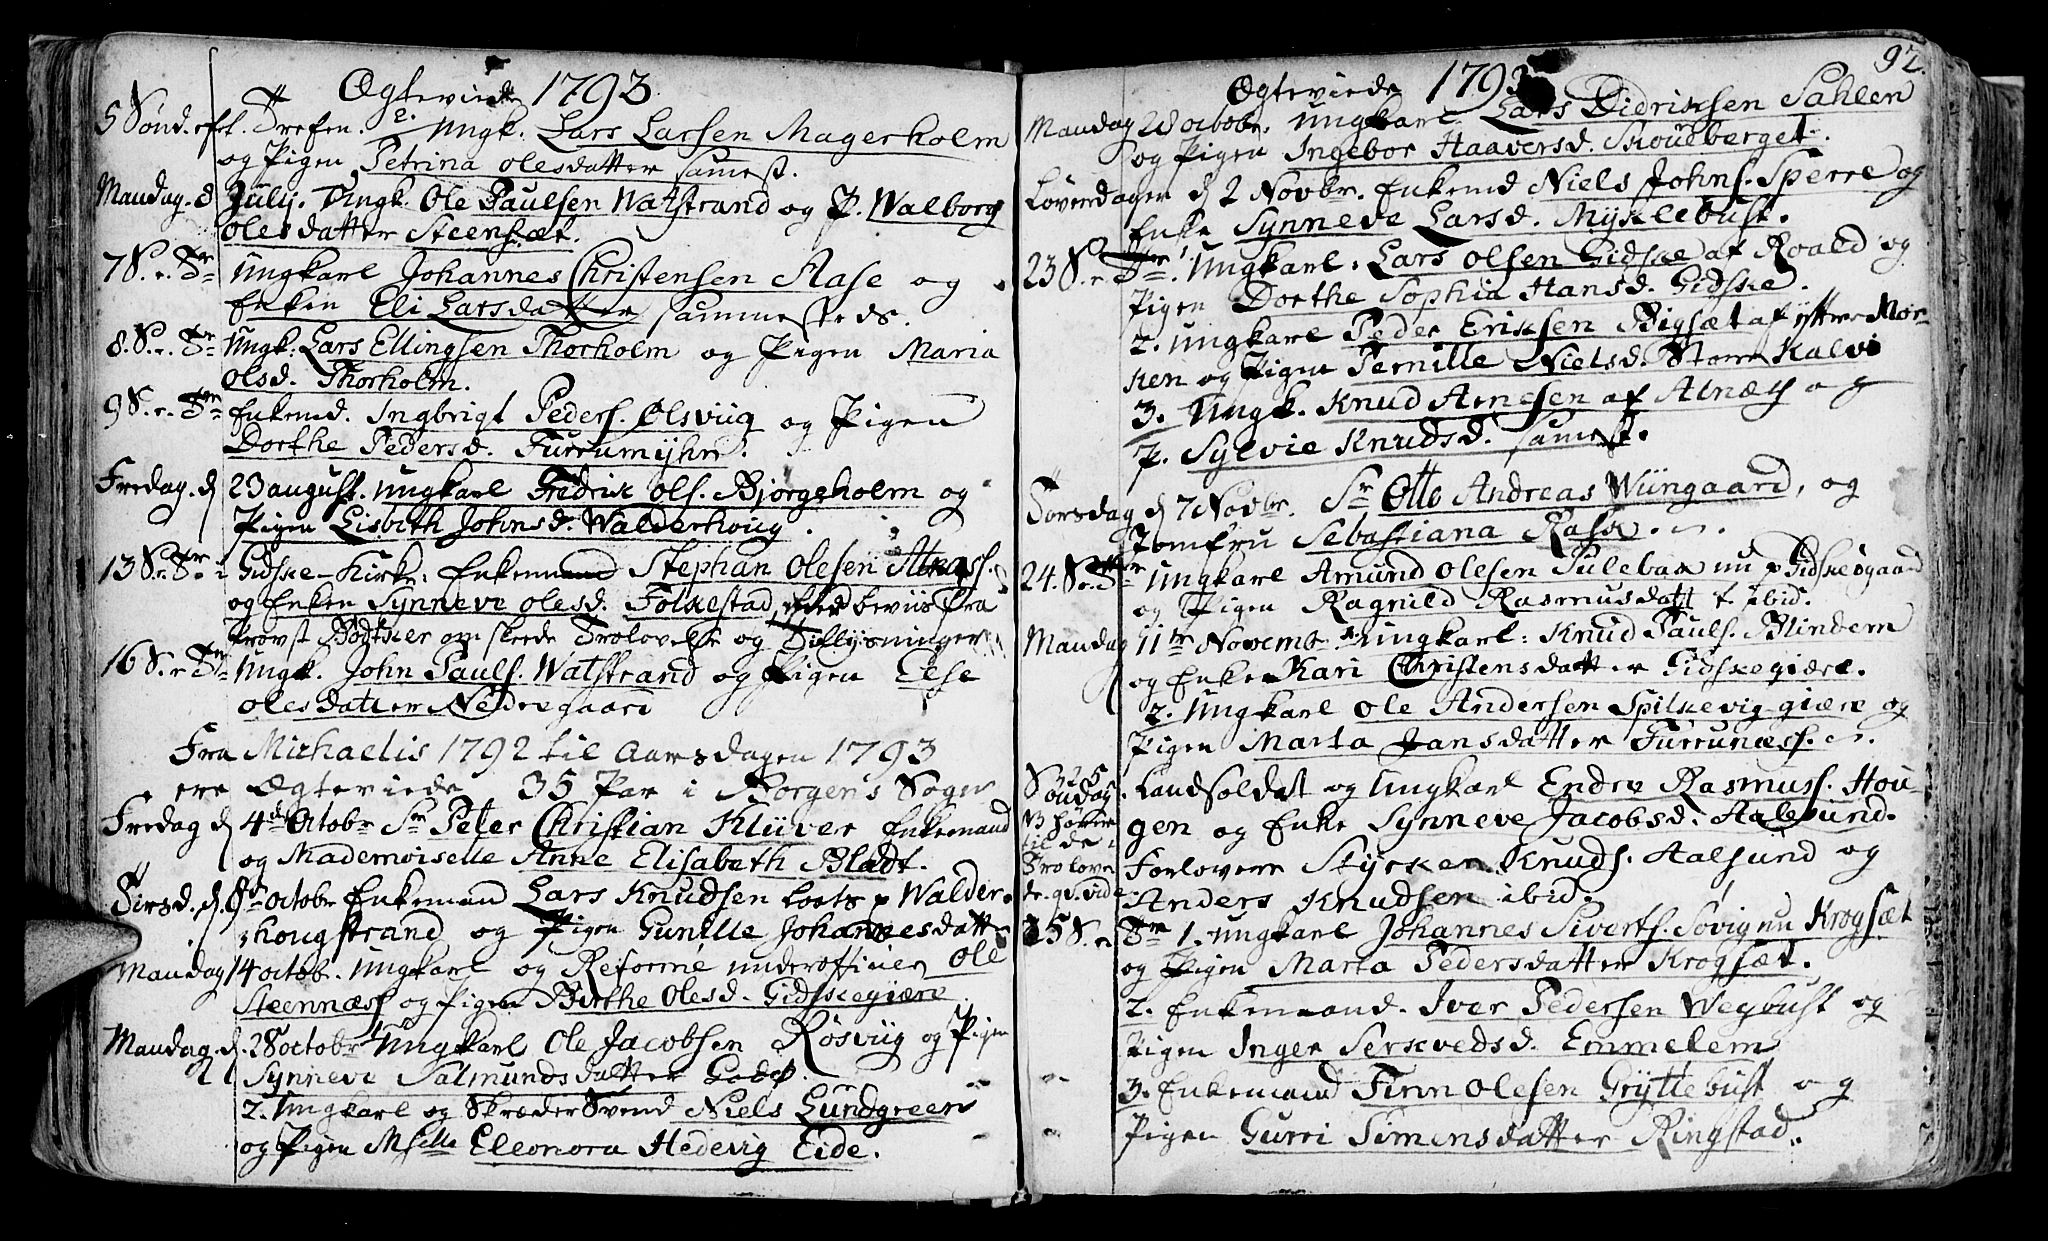 Ægteviede 1793.
5 Sønd. eft. Trefen. 2. Ungk. Lars Larsen Magerholm
og Pigen Petrina olesdatter samest.
Mandag. d 8 July. Ungk. Ole Paulsen Watstrand og P. Walborg
olesdatter Steensæt.
7 S. e. Tr Ungkarl Johannes Christensen Aase og
Enken Eli Larsdatter sammesteds.
8. S. e. Tr Ungk. Lars Ellingsen Thorholm og Pigen Maria
olsd. Thorholm.
9 S. e. Tr Enkemd. Ingbrigt Peders. Olsviig og Pigen
Dorthe Pedersd. Furrumyhr.
Fredag. d 23 august. ungkarl Fredrik ols. Bjorgeholm og
Pigen Lisbeth Johnsd. Walderhoug.
13 S. e. Tr. i Gidske-Kirke: Enkemand Stephan Olesen Alnæss.
og Enken Synneve olesd. Folkestad, efter beviis fra
Provst Bødtker om skeede Trolovelse og Tillysninger
16 S. e Tr Ungk. John Pauls. Watstrand og Pigen Else
olesdatter Nedregaard
Fra Michaelis 1792 til Aarsdagen 1793
ere Ægteviede 35 Par i Borgens Sogn
Fredag d 4de Octobr Sr Peter Christian Klüver Enkemand
og Mademoiselle Anne Elisabeth Bladt.
Tirsd. d. 8de octobr Enkemand Lars Knudsen Loots p Walder-
hougstrand og Pigen Gunille Johannesdatter
Mandag 14 octob. Ungkarl og Reforme underofficer Ole
Steennæss og Pigen Birthe Olesd. Gidskegiære
Mandag. d. 28 octobr 1 Ungkarl Ole Jacobsen Røsviig og Pigen
Synneve Salmundsdatter Godø.
2. Ungkarl og Skræder Svend Niels Lundgreen
og Pigen Mselle Eleonora Hedevig Eide.
92.
Ægteviede 1793
Mandag 28 octobr. Ungkarl Lars Didriksen Sahlen
og Pigen Ingebor Haaversd. Skouberget.
Løverdagen d 2 Novbr. Enkemd Niels Johns. Sperre og
Enke Synneve Larsd. Myklebust.
23 S. e Tr. 1. Ungkarl. Lars Olsen Gidske af Roald og
Pigen Dorthe Sophia Hansd. Gidske.
2. Ungkarl Peder Eriksen Bigsæt af yttre Mor-
ken og Pigen Pernille Nielsd. Store Kalvø
3. Ungk. Knud Arnesen af Alnæs og
P. Sylvie Knudsd. samest.
Torsdag d 7 Novbr. Sr Otto Andreas Wiingaard, og
Jomfru Sebastiana Rask.
24. S. e Tr Ungkarl Amund Olesen Sulebak nu p Gidskøgaard
og Pigen Ragnild Rasmusdatt t ibid.
Mandag 11te Novemb. 1. ungkarl: Knud Pauls. Blindem
og Enken Kari Christensdatter Gidskegiære.
2. Ungkarl Ole Andersen Spilkevig giære og
Pigen Marta Jansdatter Furrunæss.
Søndag Landsoldat og Ungkarl Endre Rasmuss. Hou-
gen og Enke Synneve Jacobsd. Aalesund.
Forlovere Styrker Knuds. Aalsund og
Anders Knudsen ibid.
25 S. e Tr 1. ungkarl Johannes Siverts. Sovig nu Krogsæt
og Pigen Marta Pedersdatter Krogsæt.
2. Enkemand. Iver Pedersen Wegbust og
Pigen Inger Serkvedsd. Emmelem
3. Enkemand Finn Olesen Gryttebust og
Pigen Gurri Simensdatter Ringstad.